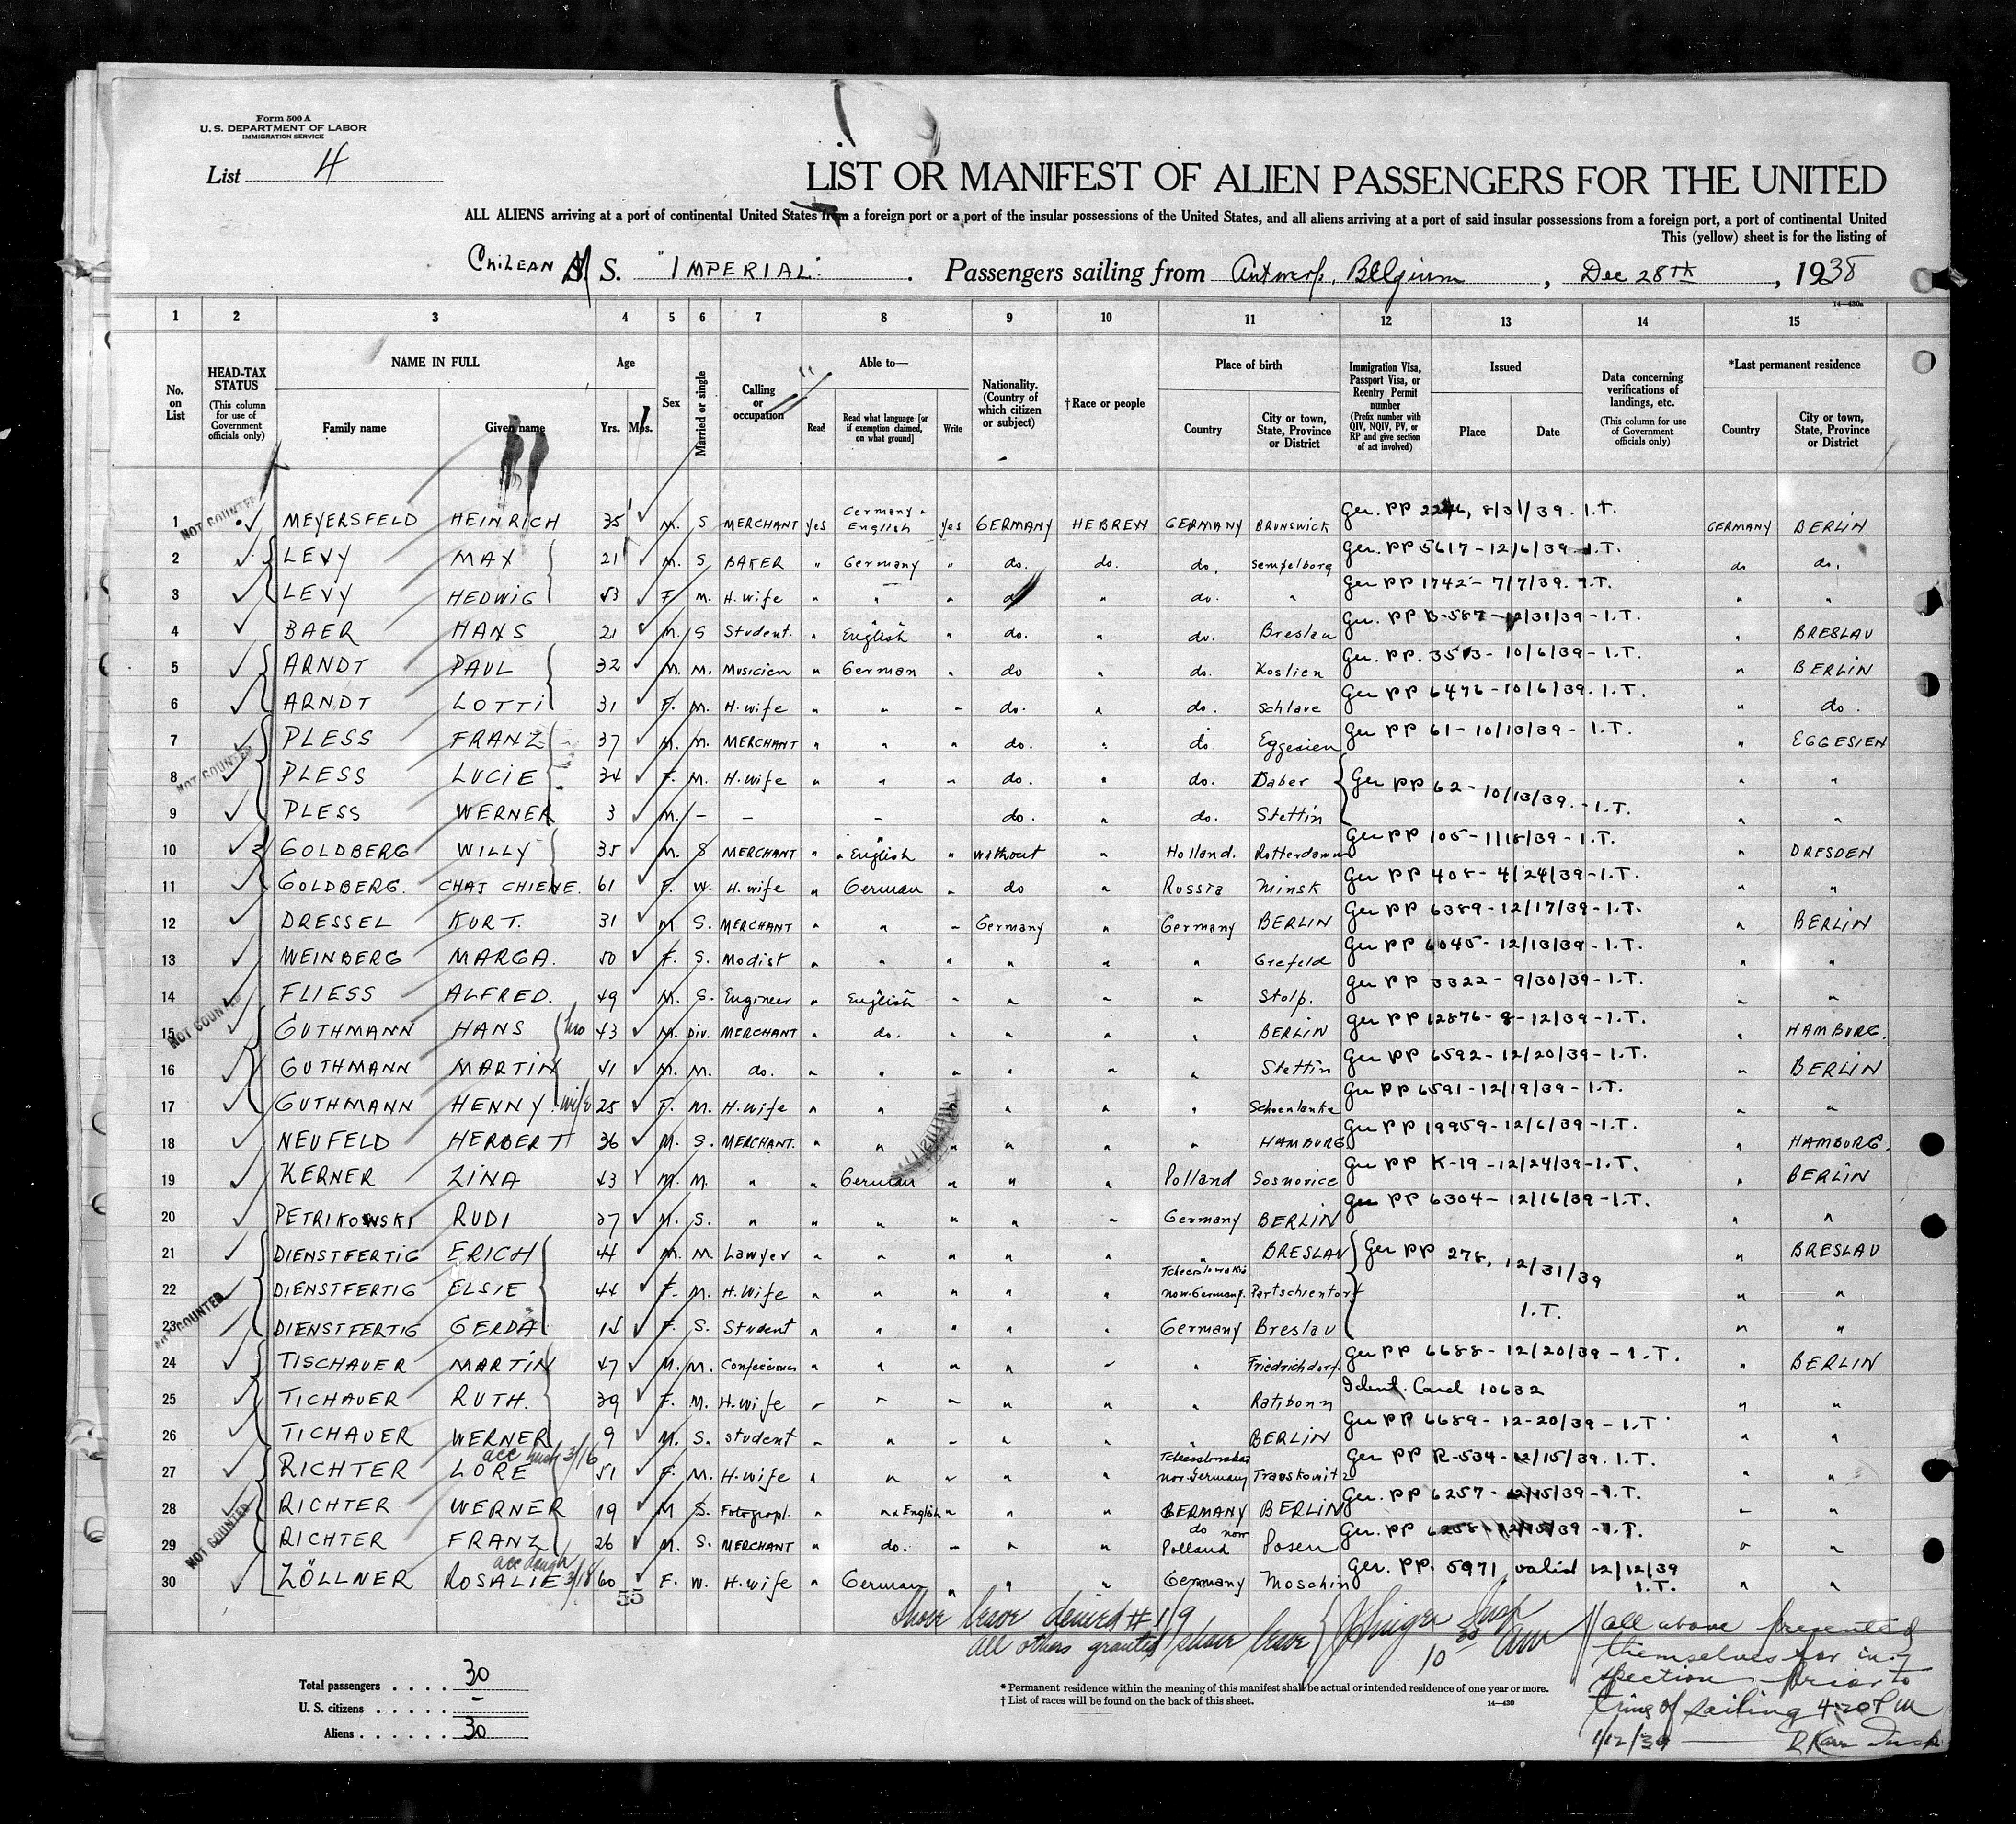 Form 500 A
U. S. DEPARTMENT OF LABOR
IMMIGRATION SERVICE
List 4
LIST OR MANIFEST OF ALIEN PASSENGERS FOR THE UNITED
ALL ALIENS arriving at a port of continental United States from a foreign port or a port of the insular possessions of the United States, and all aliens arriving at a port of said insular possessions from a foreign port, a port of continental United
This (yellow) sheet is for the listing of
CHILEAN M S. "IMPERIAL". Passengers sailing from Antwerp, Belgium, Dec 28th, 1938
14—430a
1 2 3 4 5 6 7 8 9 10 11 12 13 14 15
No. on List
HEAD-TAX STATUS (This column for use of Government officials only)
NAME IN FULL Family name Given name
Age Yrs. Mos.
Sex
Married or single
Calling or occupation
Able to— Read Read what language [or if exemption claimed, on what ground] Write
Nationality. (Country of which citizen or subject)
†Race or people
Place of birth Country City or town, State, Province or District
Immigration Visa, Passport Visa, or Reentry Permit number (Prefix number with QIV, NQIV, PV, or RP and give section of act involved)
Issued Place Date
Data concerning verifications of landings, etc. (This column for use of Government officials only)
*Last permanent residence Country City or town, State, Province or District
NOT COUNTED
1 MEYERSFELD HEINRICH 35 M. S MERCHANT yes Germany English yes GERMANY HEBREW GERMANY BRUNSWICK Ger. PP 2246, 8/31/39. I.T. GERMANY BERLIN
2 LEVY MAX 21 M. S BAKER " Germany " do. do. do. Sempelborg Ger. PP 5617-12/6/39-I.T. do do.
3 LEVY HEDWIG 53 F. M. H. wife " " " do " do. " Ger PP 1742-7/7/39. I.T. " "
4 BAER HANS 21 M. S Student. " English " do. " do. Breslau Ger. PP B-587-12/31/39-I.T. " BRESLAU
5 ARNDT PAUL 32 M. M. Musicien " German " do " do. Koslien Ger. PP. 3513-10/6/39-I.T. " BERLIN
6 ARNDT LOTTI 31 F. M. H. wife " " " do. " do. Schlave Ger PP 6476-10/6/39. I.T. " do.
7 PLESS FRANZ 37 M. M. MERCHANT " " " do. " do Eggesien Ger PP 61-10/13/39-I.T. " EGGESIEN
NOT COUNTED
8 PLESS LUCIE 34 F. M. H. wife " " " do. " do. Daber Ger PP 62-10/13/39.-I.T. " "
9 PLESS WERNER 3 M. - - - do. " do. Stettin " "
10 GOLDBERG WILLY 35 M. S MERCHANT " " English " without " Holland. Rotterdamm Ger PP 105-1/18/39-I.T. " DRESDEN
11 GOLDBERG. CHAJ CHIENE. 61 F. W. H. wife " German " do " Russia Minsk Ger PP 408-4/24/39-I.T. " "
12 DRESSEL KURT. 31 M S. MERCHANT " " " Germany " Germany BERLIN Ger PP 6389-12/17/39-I.T. " BERLIN
13 WEINBERG MARGA. 50 F. S. Modist " " " " " " Grefeld Ger PP 6045-12/13/39-I.T. " "
14 FLIESS ALFRED. 49 M. S. Engineer " English " " " " Stolp. Ger PP 3322-9/30/39-I.T. " "
NOT COUNTED
15 GUTHMANN HANS bro 43 M. Div. MERCHANT " do. " " " " BERLIN Ger PP 12876-8-12/39-I.T. " HAMBURG.
16 GUTHMANN MARTIN 41 M. M. do. " " " " " " Stettin Ger PP 6592-12/20/39-I.T. " BERLIN
17 GUTHMANN HENNY. wife 25 F. M. H. wife " " " " " " Schoenlanke Ger PP 6591-12/19/39-I.T. " "
18 NEUFELD HERBERT 36 M. S. MERCHANT. " " " " " " HAMBURG Ger PP 19959-12/6/39-I.T. " HAMBURG.
19 KERNER ZINA 43 M. M. " " German " " " Polland Sosnovice Ger PP K-19-12/24/39-I.T. " BERLIN
20 PETRIKOWSKI RUDI 27 M. S. " " " " " " Germany BERLIN Ger PP 6304-12/16/39-I.T. " "
21 DIENSTFERTIG ERICH 44 M. M. Lawyer " " " " " " BRESLAU Ger PP 278, 12/31/39 I.T. " BRESLAU
22 DIENSTFERTIG ELSIE 44 F. M. H. Wife " " " " " now Germany. " "
NOT COUNTED
23 DIENSTFERTIG GERDA. 14 F. S. Student " " " " " Germany Breslau " "
24 TISCHAUER MARTIN 47 M. M. " " " " " " Friedrichdorf. Ger PP 6688-12/20/39-I.T. " BERLIN
25 TICHAUER RUTH. 39 F. M. H. wife " " " " " " Ratibonn Ident. Card 10632 " "
26 TICHAUER WERNER 9 M. S. student " " " " " " BERLIN Ger PP 6689-12-20/39-I.T. " "
acc husb 3/16
27 RICHTER LORE 51 F. M. H. wife " " " " " now Germany Ger PP R-534-12/15/39. I.T. " "
28 RICHTER WERNER 19 M S. Fotograpl. " " " English " " " GERMANY BERLIN Ger. PP 6257-12/15/39-I.T. " "
NOT COUNTED
29 RICHTER FRANZ 26 M. S. MERCHANT " do. " " " do now Polland Posen Ger. PP 6258-12/15/39-I.T. " "
acc daugh 3/18
30 ZÖLLNER ROSALIE 60 F. W. H. wife " German " " " Germany Moschin Ger. PP. 5971 valid 12/12/39 I.T. " "
55
Shore leave denied #19
all others granted shore leave
Insp
10 30 AM
all above presented
themselves for in-
spection prior to
time of sailing 4:20 PM
1/12/39
Total passengers . . . . 30
U. S. citizens . . . . . -
Aliens . . . . . . 30
* Permanent residence within the meaning of this manifest shall be actual or intended residence of one year or more.
† List of races will be found on the back of this sheet.
14—430